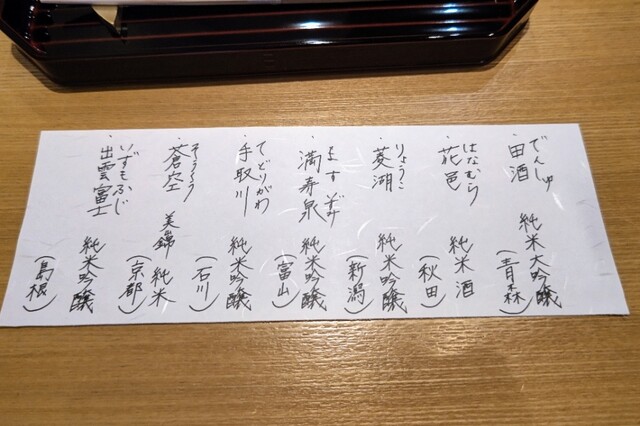 でんしゅ
・田酒 純米大吟醸
(青森)
はなむら
・花邑 純米酒
(秋田)
りょうこ
・菱湖 純米吟醸
(新潟)
ますいずみ
・満寿泉 純米吟醸
(富山)
てどりがわ
・手取川 純米吟醸
(石川)
そうくう
・蒼空 美錦 純米
(京都)
いずもふじ
・出雲富士 純米吟醸
(島根)